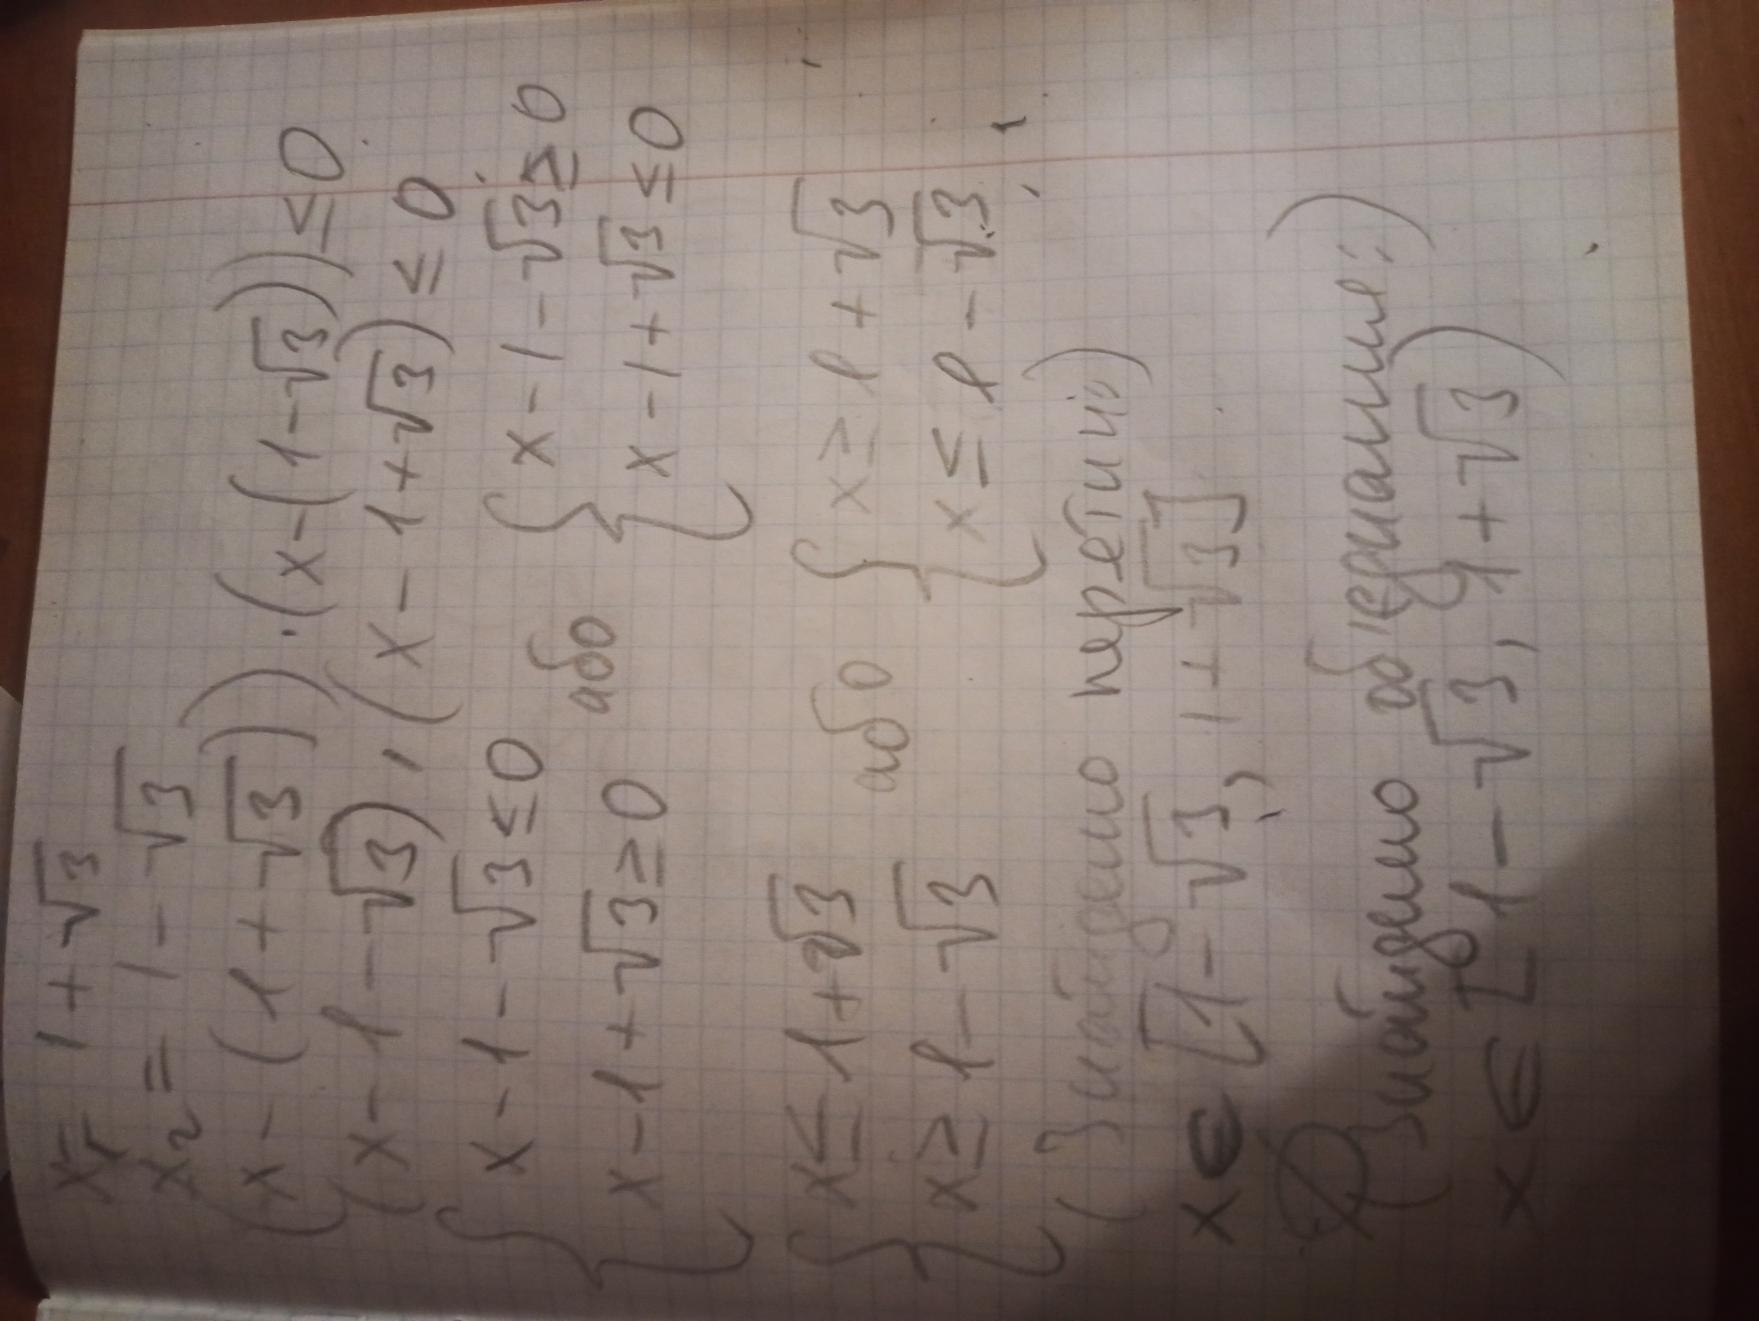 x₁ 1 + √3
x₂ = 1 - √3
(x - (1 + √3)) · (x - (1 - √3)) ≤ 0
(x - 1 - √3), (x - 1 + √3) ≤ 0
{ x - 1 - √3 ≤ 0 { x - 1 - √3 ≥ 0
або
{ x - 1 + √3 ≥ 0 { x - 1 + √3 ≤ 0
{ x ≤ 1 + √3 { x ≥ 1 + √3
або
{ x ≥ 1 - √3 { x ≤ 1 - √3
(Знайдемо перетин)
x ∈ [1 - √3, 1 + √3]
(Знайдемо об'єднання:)
x ∈ [1 - √3, 1 + √3)